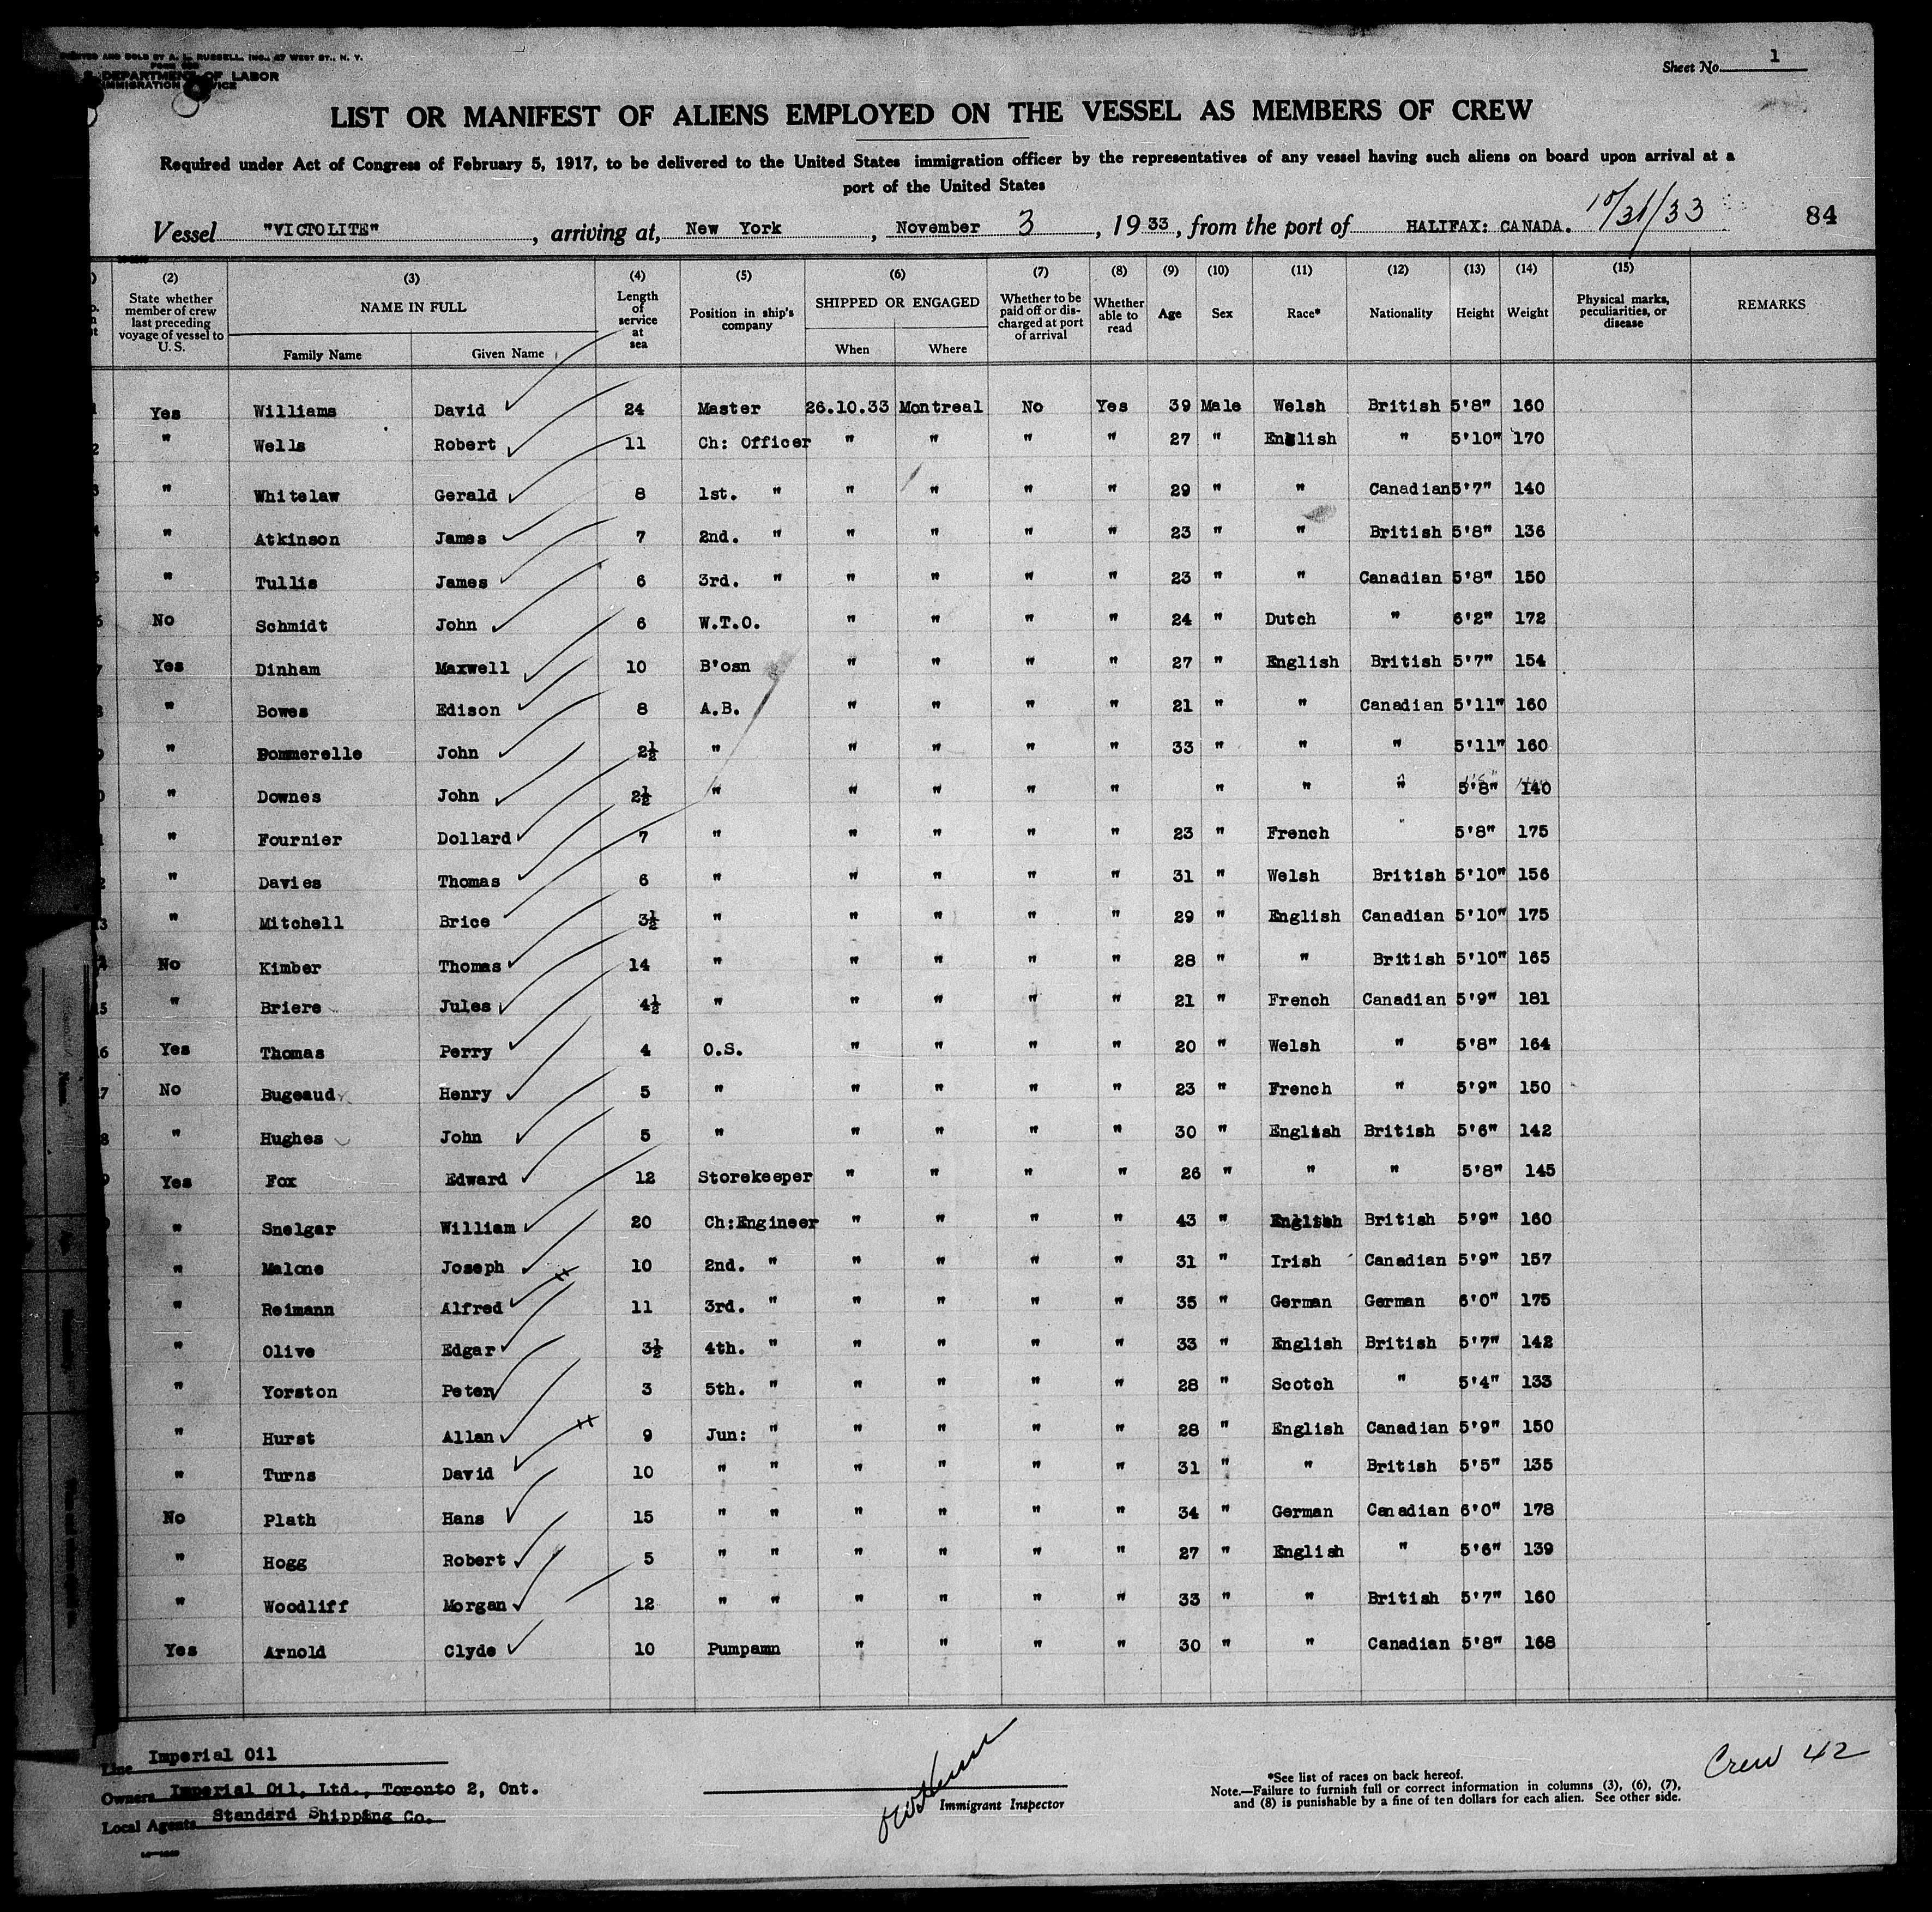 PRINTED AND SOLD BY A. L. RUSSELL, INC., 47 WEST ST., N. Y.
DEPARTMENT OF LABOR
IMMIGRATION SERVICE
Sheet No. 1
LIST OR MANIFEST OF ALIENS EMPLOYED ON THE VESSEL AS MEMBERS OF CREW
Required under Act of Congress of February 5, 1917, to be delivered to the United States immigration officer by the representatives of any vessel having such aliens on board upon arrival at a
port of the United States
Vessel "VICTOLITE", arriving at, New York, November 3, 1933, from the port of HALIFAX: CANADA. 10/31/33 84
(2) (3) (4) (5) (6) (7) (8) (9) (10) (11) (12) (13) (14) (15)
State whether member of crew last preceding voyage of vessel to U. S. NAME IN FULL Family Name Given Name Length of service at sea Position in ship's company SHIPPED OR ENGAGED When Where Whether to be paid off or discharged at port of arrival Whether able to read Age Sex Race* Nationality Height Weight Physical marks, peculiarities, or disease REMARKS
Yes Williams David 24 Master 26.10.33 Montreal No Yes 39 Male Welsh British 5'8" 160
" Wells Robert 11 Ch: Officer " " " " 27 " English " 5'10" 170
" Whitelaw Gerald 8 1st. " " " " " 29 " " Canadian 5'7" 140
" Atkinson James 7 2nd. " " " " " 23 " " British 5'8" 136
" Tullis James 6 3rd. " " " " " 23 " " Canadian 5'8" 150
No Schmidt John 6 W.T.O. " " " " 24 " Dutch " 6'2" 172
Yes Dinham Maxwell 10 B'osn " " " " 27 " English British 5'7" 154
" Bowes Edison 8 A.B. " " " " 21 " " Canadian 5'11" 160
" Pommerelle John 2½ " " " " " 33 " " " 5'11" 160
" Downes John 2½ " " " " " " " " 5'8" 140
" Fournier Dollard 7 " " " " " 23 " French " 5'8" 175
" Davies Thomas 6 " " " " " 31 " Welsh British 5'10" 156
" Mitchell Brice 3½ " " " " " 29 " English Canadian 5'10" 175
No Kimber Thomas 14 " " " " " 28 " " British 5'10" 165
" Briere Jules 4½ " " " " " 21 " French Canadian 5'9" 181
Yes Thomas Perry 4 O.S. " " " " 20 " Welsh " 5'8" 164
No Bugeaud Henry 5 " " " " " 23 " French " 5'9" 150
" Hughes John 5 " " " " " 30 " English British 5'6" 142
Yes Fox Edward 12 Storekeeper " " " " 26 " " " 5'8" 145
" Snelgar William 20 Ch:Engineer " " " " 43 " English British 5'9" 160
" Malone Joseph 10 2nd. " " " " " 31 " Irish Canadian 5'9" 157
" Reimann Alfred 11 3rd. " " " " " 35 " German German 6'0" 175
" Olive Edgar 3½ 4th. " " " " " 33 " English British 5'7" 142
" Yorston Peter 3 5th. " " " " " 28 " Scotch " 5'4" 133
" Hurst Allan 9 Jun: " " " " " 28 " English Canadian 5'9" 150
" Turns David 10 " " " " " " 31 " " British 5'5" 135
No Plath Hans 15 " " " " " " 34 " German Canadian 6'0" 178
" Hogg Robert 5 " " " " " " 27 " English " 5'6" 139
" Woodliff Morgan 12 " " " " " " 33 " " British 5'7" 160
Yes Arnold Clyde 10 Pumpamn " " " " 30 " " Canadian 5'8" 168
Line Imperial Oil
Owners Imperial Oil, Ltd., Toronto 2, Ont.
Local Agents Standard Shipping Co.
Immigrant Inspector
*See list of races on back hereof.
Note.—Failure to furnish full or correct information in columns (3), (6), (7),
and (8) is punishable by a fine of ten dollars for each alien. See other side.
Crew 42